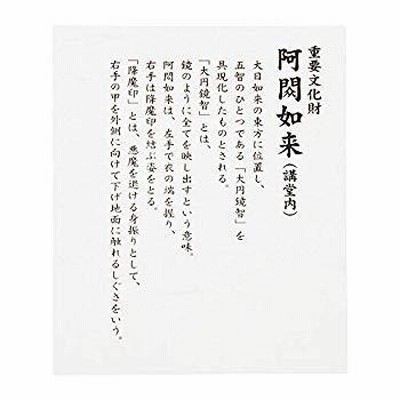 重要文化財
阿閦如来(講堂内)
大日如来の東方に位置し、
五智のひとつである「大円鏡智」を
具現化したものとされる。
「大円鏡智」とは、
鏡のように全てを映し出すという意味。
阿閦如来は、左手で衣の端を握り、
右手は降魔印を結ぶ姿をとる。
「降魔印」とは、悪魔を退ける身振りとして、
右手の甲を外側に向けて下げ地面に触れるしぐさをいう。